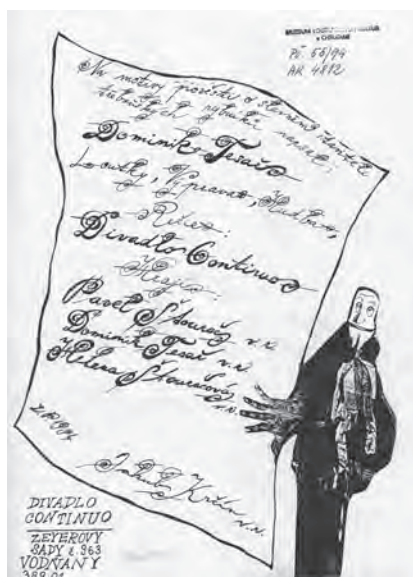 MUZEUM
v CHRUDIMI
Př. 56/94
AR
Na motivy pověstí o slavném staviteli
rybníků napsal:
Dominik Tesař
Loutky, Výprava, Hudba,
Režie:
Divadlo Continuo
Hrají:
Pavel Štourač v.r.
Dominik Tesař v.r.
Helena Štouračová
v.r.
Jakub Krčín v.r.
DIVADLO
CONTINUO
ZEYEROVY
SADY č. 963
VODŇANY
389 01